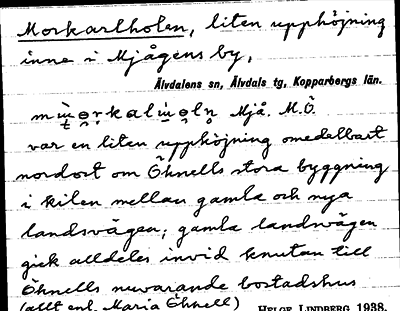 Morkarlholen, liten upphöjning
inne i Mjågens by,
Älvdalens sn, Älvdals tg, Kopparbergs län.
Mjå. M.Ö.
var en liten upphöjning omedelbart
nordost om Öhnells stora byggning
i kilen mellan gamla och nya
landsvägen; gamla landsvägen
gick alldeles invid knutan till
Öhnells nuvarande bostadshus
(allt enl. Maria Öhnell) HELGE LINDBERG 1938.